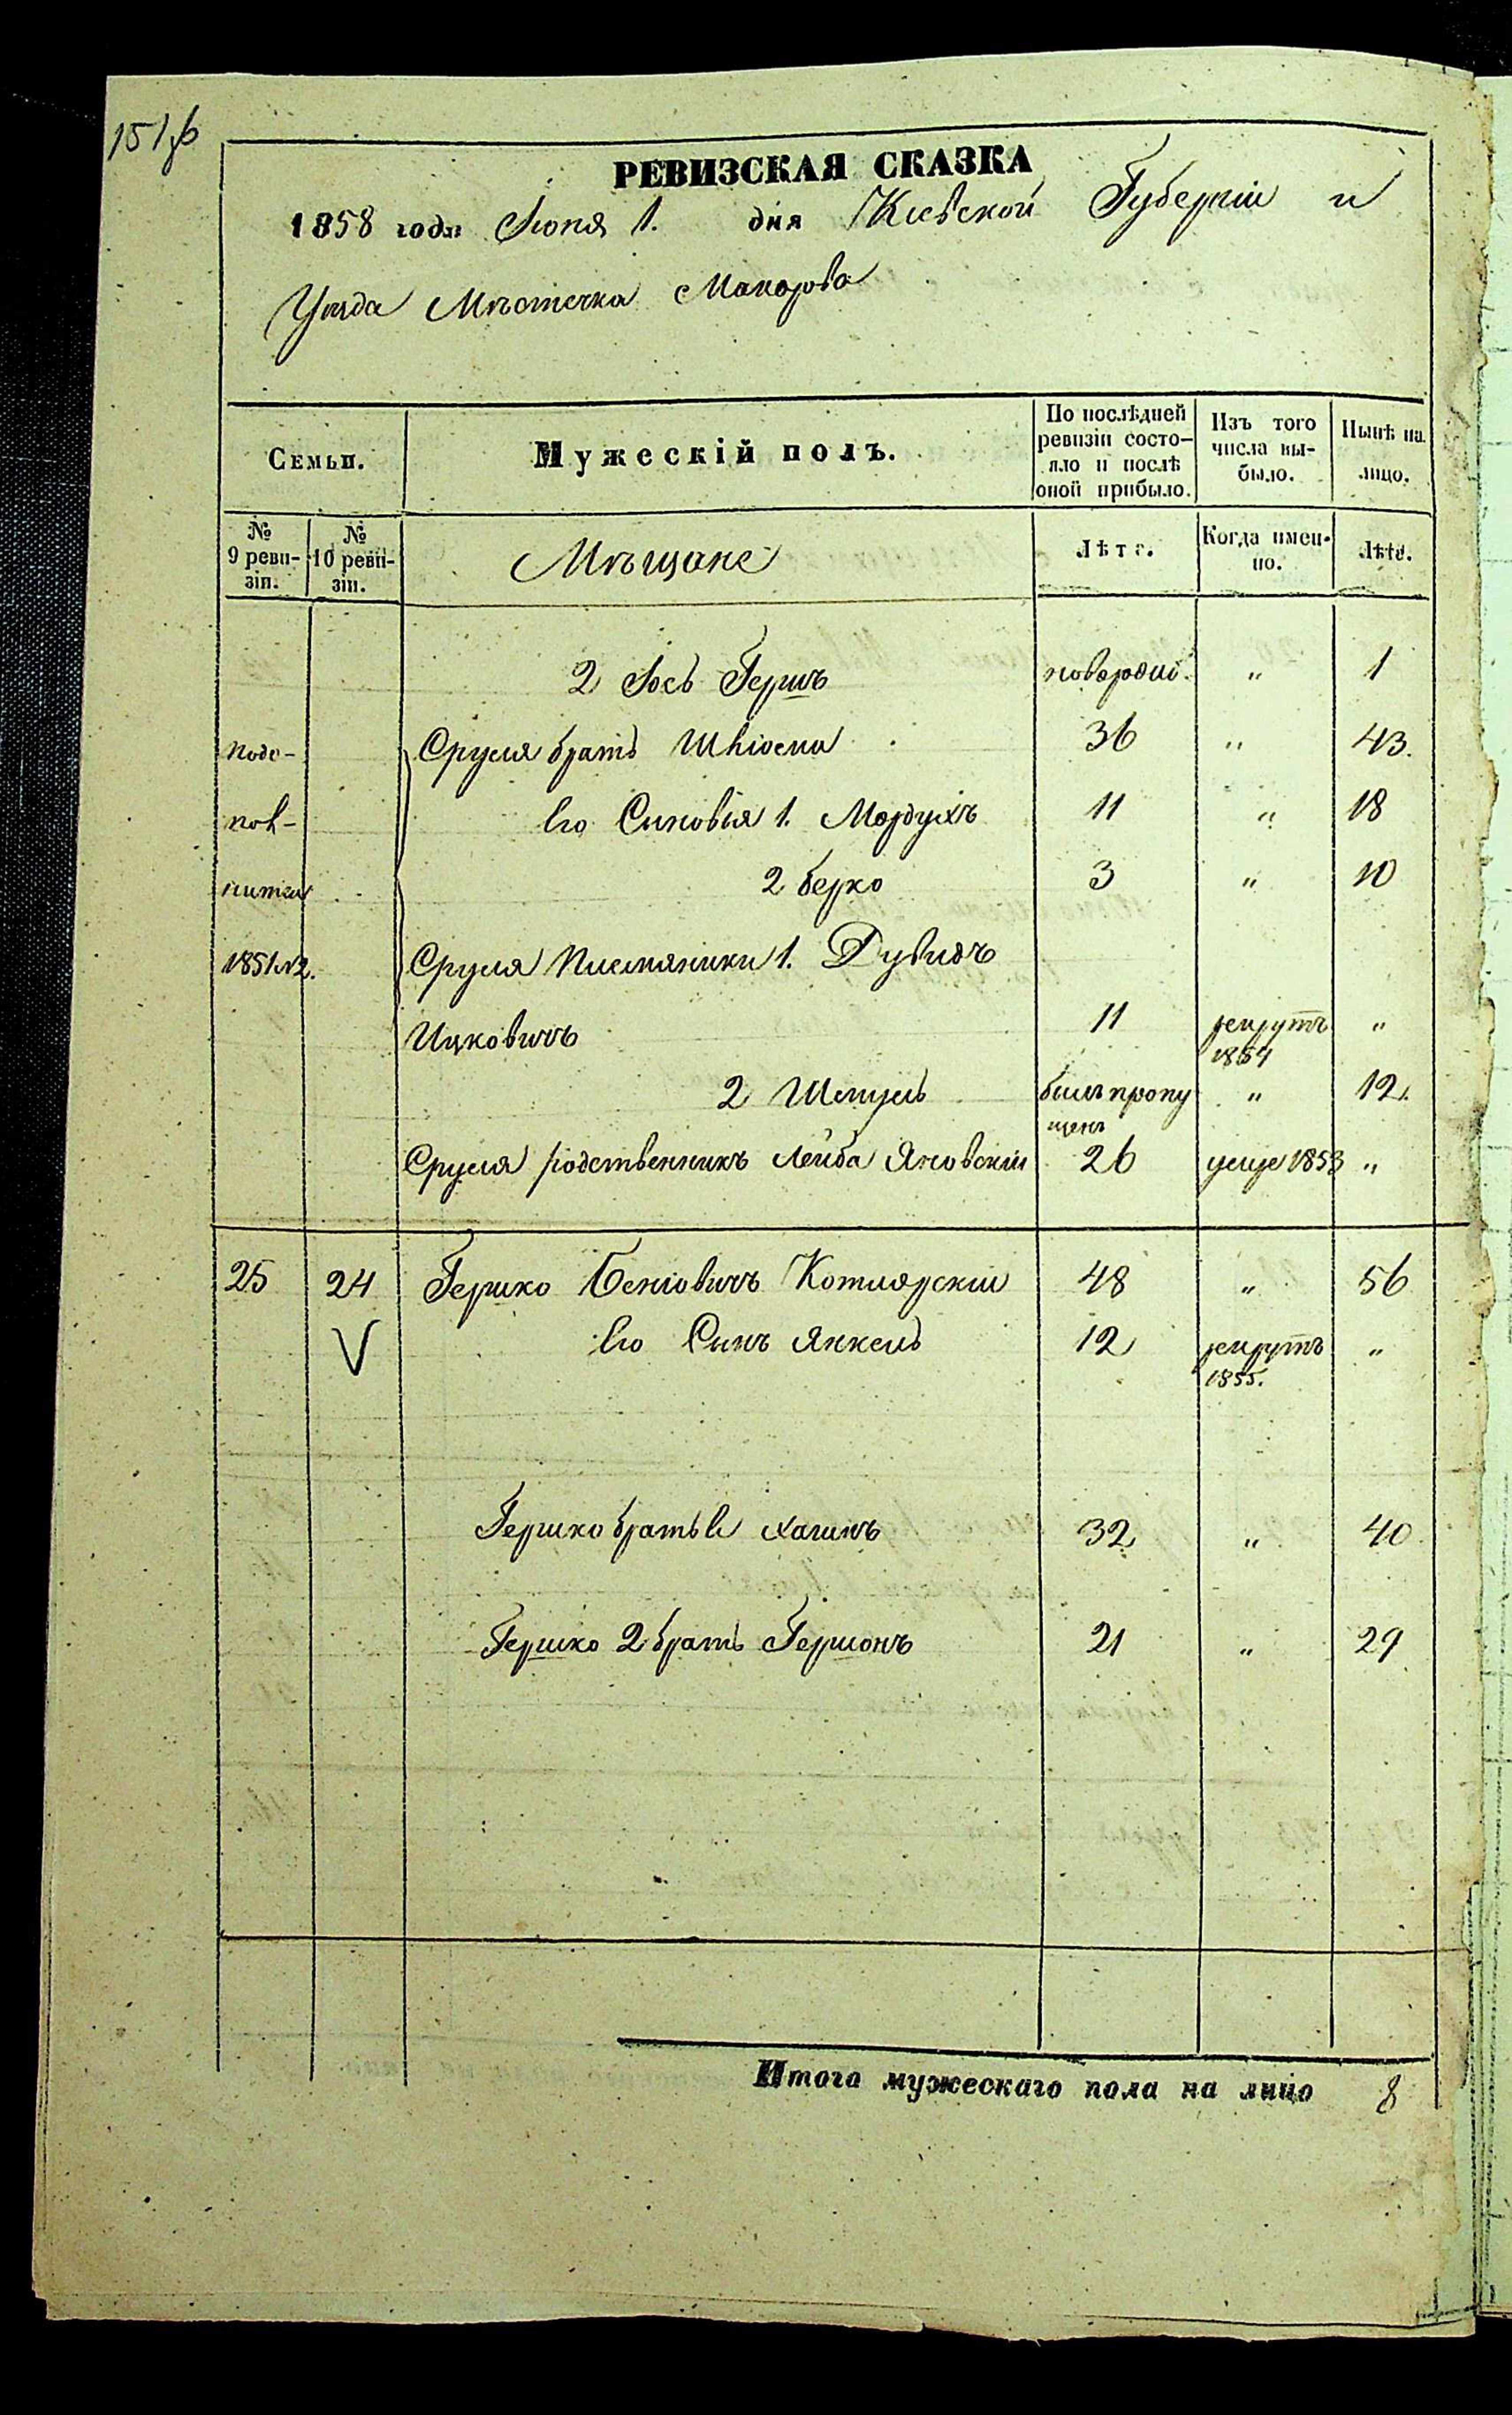 151об
РЕВИЗСКАЯ СКАЗКА
1858 года Іюня 1. дня Кіевской Губерніи и
Уѣзда Мѣстечка Макарова
Семьи.
Мужескій полъ.
По послѣдней ревизіи состо-
яло и послѣ оной прибыло.
Изъ того числа вы-
было.
Нынѣ на лицо.
№ 9 реви-
зіи.
№ 10 реви-
зіи.
Мѣщане
Лѣта.
Когда имен-
но.
Лѣта.
2 Іось Гершъ новорожд. " 1
подо- Сруля братъ 36 " 43.
пол- Его Сыновья 1. Мордухъ 11 " 18
2 Берко 3 " 10
1851 №2. Сруля Племяники 1. Дувидъ
Ицковичъ 11 рекрутъ "
1854
2 Шмуль былъ пропу " 12.
щенъ
Сруля родственникъ Лейба Яновскій 26 1853 "
25 24 Гершко Беніовичъ Котлярскій 48 " 56
Его Сынъ Янкель 12 рекрутъ "
1855.
Гершко братья Хаимъ 32 " 40
Гершко 2 братъ Гершонъ 21 " 29
Итого мужескаго пола на лицо 8